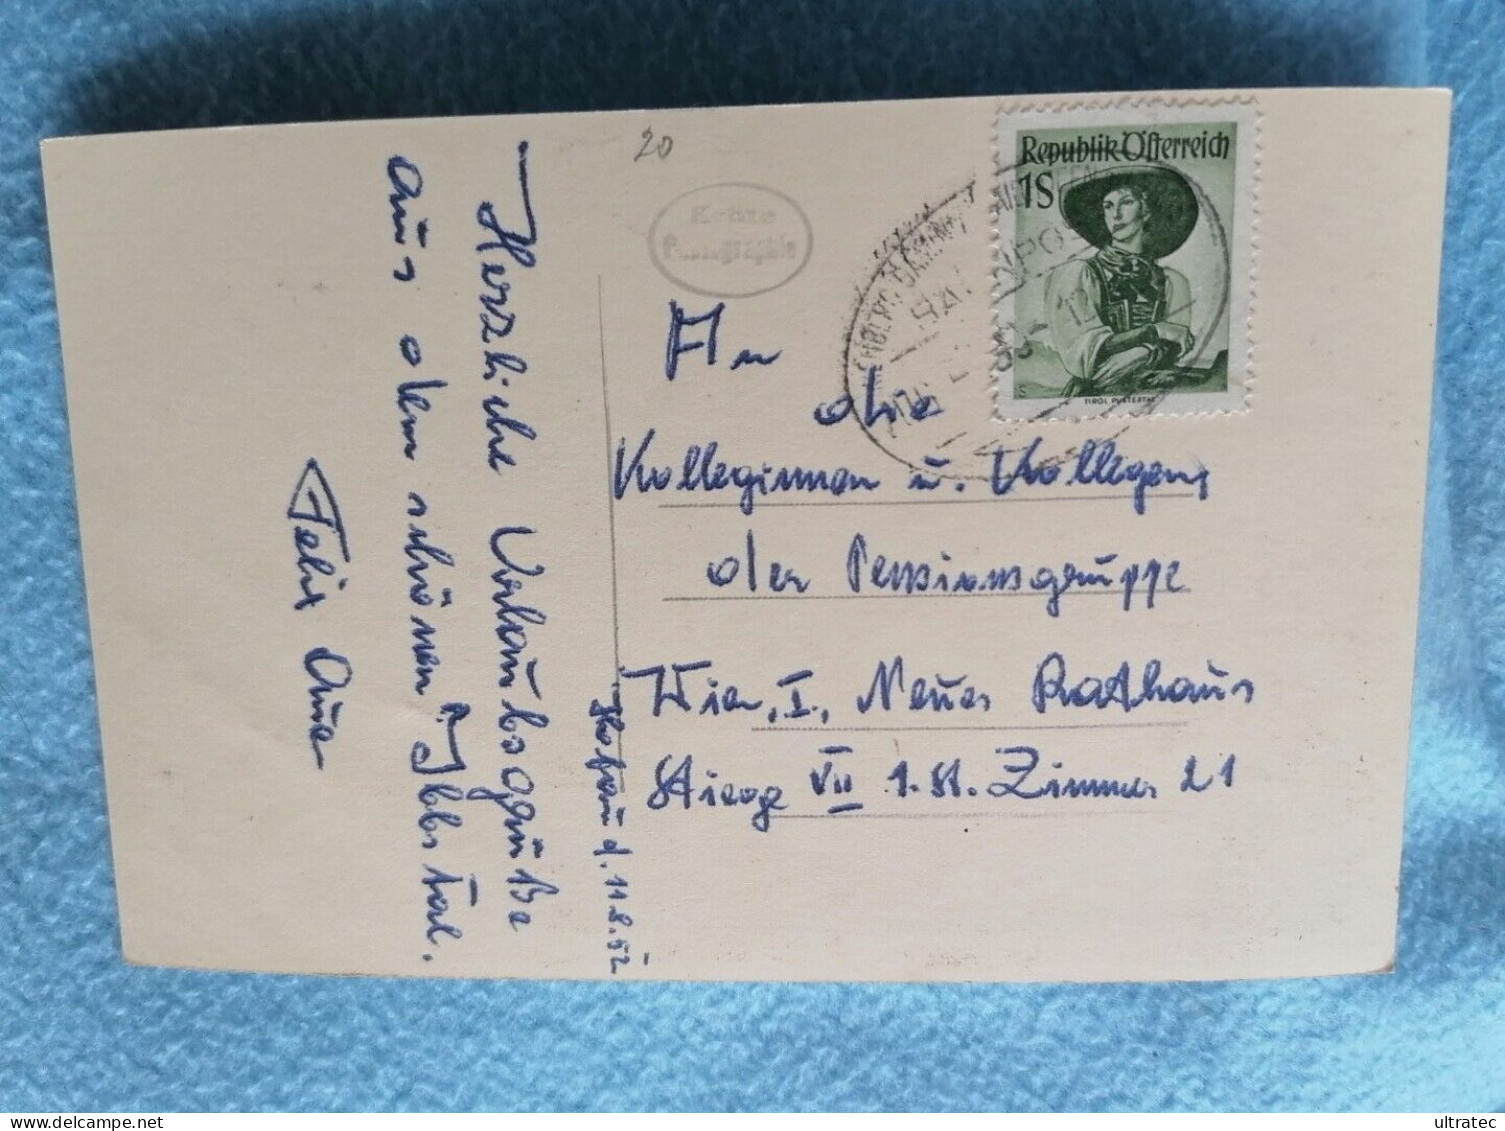 20
Echte
Photographie
Republik Österreich
1S
TIROL PUSTERTAL
An
die
Kolleginnen u. Kollegen
der Pensionsgruppe
Wien, I., Neues Rathaus
Stiege VII 1. St. Zimmer 21
d. 11.8.52
Herzliche Urlaubsgrüße
aus dem schönen Ybbstal.
Felix
ultratec